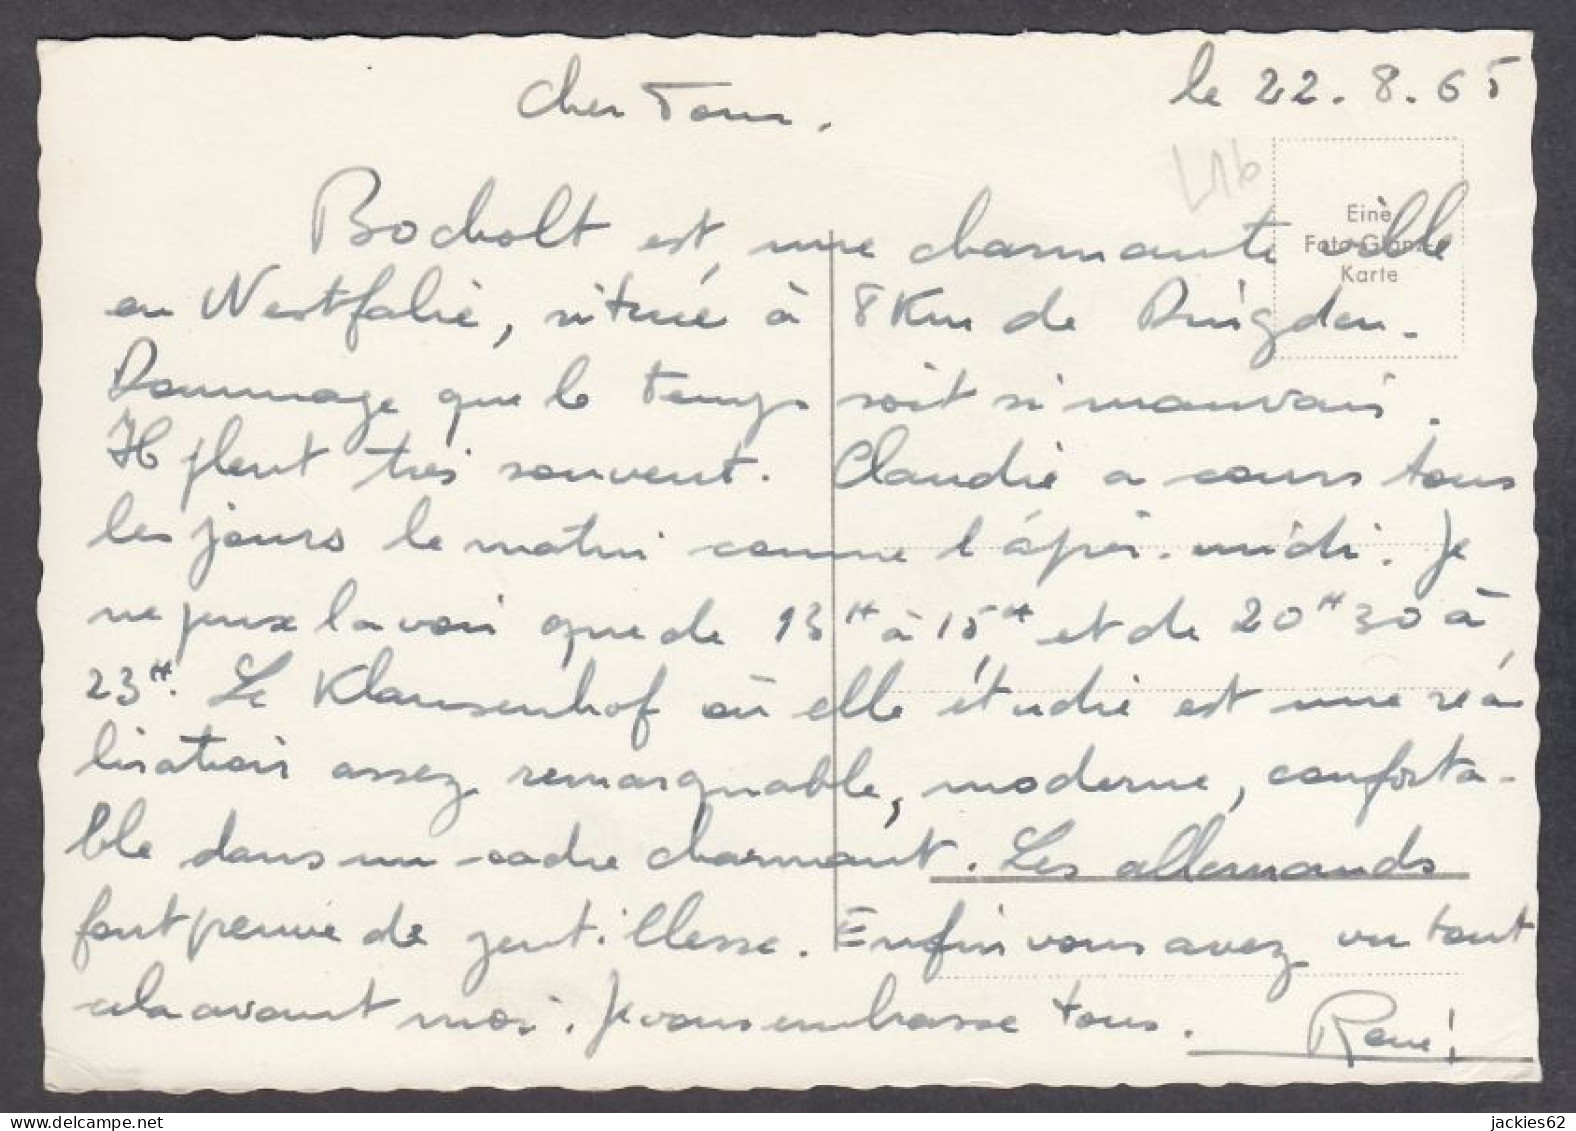 le 22.8.65
Cher Tous,
L16
Eine
Foto-Glanz-
Karte
Bocholt est une charmante ville
en Westfalie, située à 8 Km de Dingden.
Dommage que le temps soit si mauvais.
Il pleut très souvent. Claudie a cours tous
les jours le matin comme l'après-midi. Je
ne peux la voir que de 13H à 15H et de 20H30 à
23H. Le Klausenhof où elle étudie est une réa
lisation assez remarquable, moderne, conforta-
ble dans un cadre charmant. Les allemands
font preuve de gentillesse. Enfin vous avez vu tout
cela avant moi. Je vous embrasse tous.
René
www.delcampe.net
jackies62